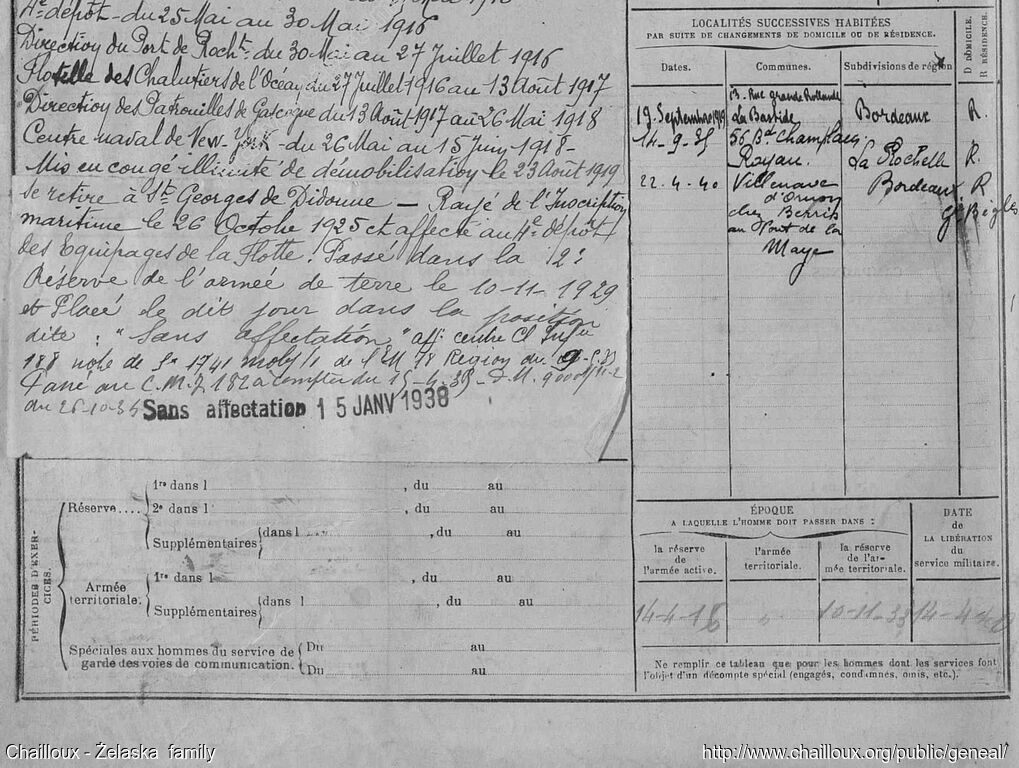 4e dépôt - du 25 Mai au 30 Mai 1916
Direction du Port de Rocht. du 30 Mai au 27 Juillet 1916
Flottille des Chalutiers de l'Océan du 27 Juillet 1916 au 13 Août 1917
Direction des Patrouilles de Gascogne du 13 Août 1917 au 26 Mai 1918
Centre naval de New-York - du 26 Mai au 15 Juin 1918 -
Mis en congé illimité de démobilisation le 23 Août 1919
se retire à St Georges de Didonne - Rayé de l'Inscription
maritime le 26 Octobre 1925 et affecté au 4e dépôt
des Equipages de la Flotte. Passé dans la 2e
Réserve de l'armée de terre le 10-11-1929
et Placé le dit jour dans la position
dite : "Sans affectation" aff. centre
188 note de 1741 mob/1 de l'EM Région du
au C.M.I 182 à compter du 15-4-35 - D.M.
du 26-10-34 Sans affectation 15 JANV 1938
PÉRIODES D'EXERCICES.
Réserve....
1re dans l , du au
2e dans l , du au
Supplémentaires dans l , du au
Armée territoriale.
1re dans l , du au
Supplémentaires dans l , du au
Spéciales aux hommes du service de garde des voies de communication.
Du au
Du au
LOCALITÉS SUCCESSIVES HABITÉES
PAR SUITE DE CHANGEMENTS DE DOMICILE OU DE RÉSIDENCE.
Dates. Communes. Subdivisions de région D DOMICILE. R RÉSIDENCE.
13. Rue grande
19 Septembre 1919 La Bastide Bordeaux R.
14-9-35 56 Bd Champlain
Royan. La Rochelle R.
22-4-40 Villenave Bordeaux R
d'Ornon Bègles
chez
au Pont de la
Maye
ÉPOQUE
A LAQUELLE L'HOMME DOIT PASSER DANS :
la réserve de l'armée active.
l'armée territoriale.
la réserve de l'armée territoriale.
DATE
de
LA LIBÉRATION
du
service militaire.
14-4-16 " 10-11-33 14-4-40
Ne remplir ce tableau que pour les hommes dont les services font
l'objet d'un décompte spécial (engagés, condamnés, omis, etc.).
Chailloux - Żelaska family
http://www.chailloux.org/public/geneal/